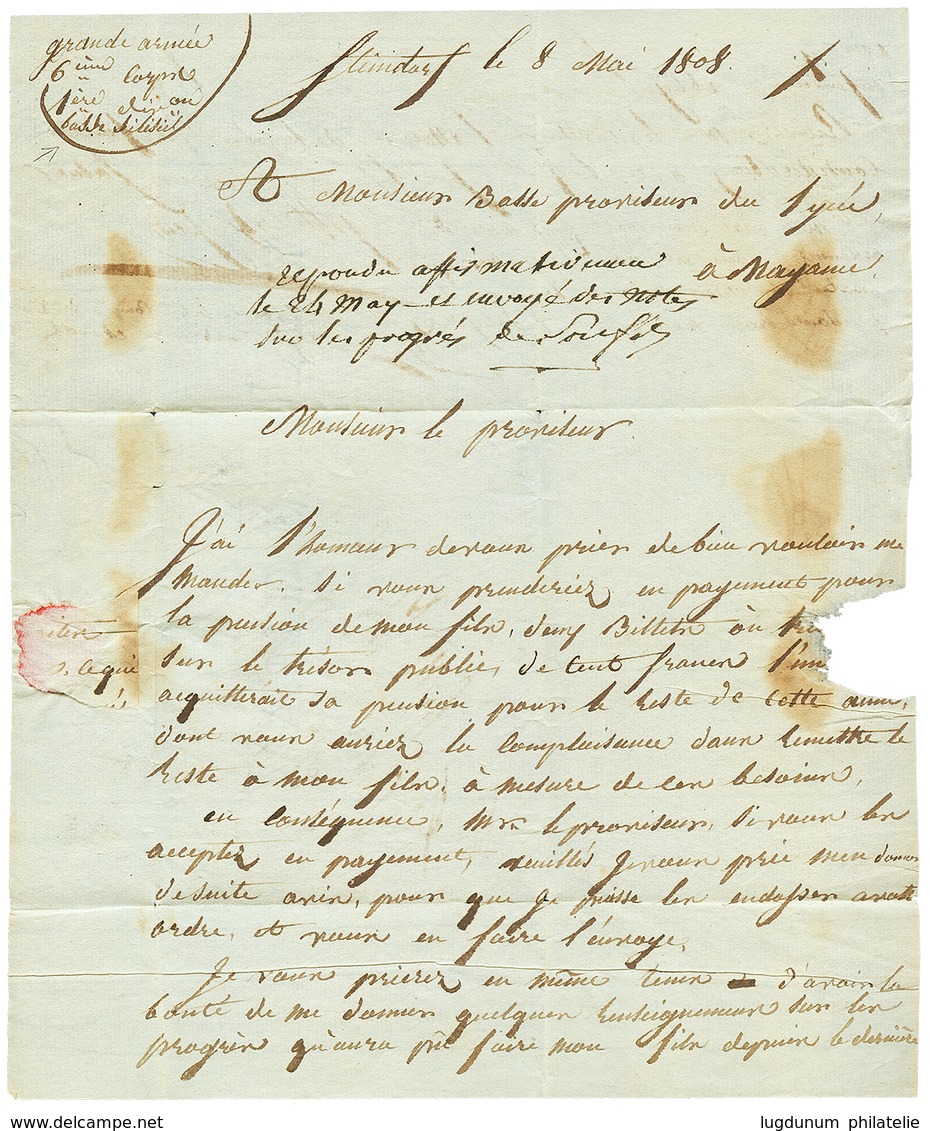 grande armée
6ème Corps
1ère division
basse silésie
le 8 Mai 1808.
A Monsieur Basse proviseur du lycée,
à Mayance.
repondu affirmativement
le 24 May et envoyé des notes
sur les progrés de
Monsieur le proviseur.
J'ai l'honneur devous prier debien vouloir me
mander. si vous prenderiez en payement pour
la pension de mon fils, deux Billets ou
sur le trésor public, de cent francs l'un
acquitterait sa pension pour le reste de cette année,
dont vous auriez la complaisance d'en remettre le
reste à mon fils. à mesure de ces besoins.
en conséquence, Mr. le proviseur, si vous les
acceptez en payement, veuillés je vous prie m'en donner
desuite avis, pour que je puisse les endosser à votre
ordre, et vous en faire l'envoye.
Je vous prierez en même tems d'avoir la
bonté de me donner quelques renseignemens sur les
progrès qu'aura pû faire mon fils depuis le dernière
lugdunum philatelie
www.delcampe.net